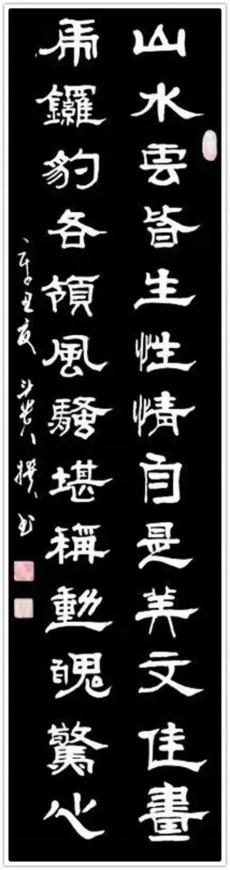 山水雲皆生性情自是美文佳畫
虎鑼豹各領風騷堪稱動魄驚心
辛丑夏